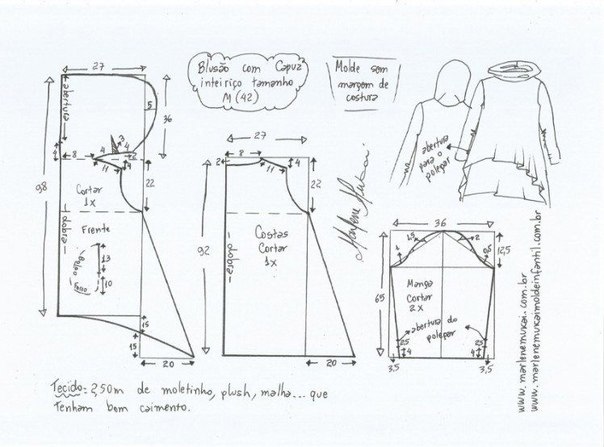 Blusão com Capuz
inteiriço tamanho
M (42)
Molde sem
margem de
costura
27
abertura
5
36
3
4
4
8
4
11
98
22
Cortar
1x
Frente
dobra
Bolso
13
10
15
15
20
27
2
8
4
11
22
92
Costas
Cortar
1x
dobra
20
Marlene Mukai
abertura
para o
polegar
36
1,5
2
1
0,5
12,5
65
Manga
Cortar
2x
abertura do
polegar
2,5
2,5
4
4
3,5
3,5
www.marlenemukai.com.br
www.marlenemukaimoldeinfantil.com.br
Tecido: 2,50m de moletinho, plush, malha... que
Tenham bom caimento.